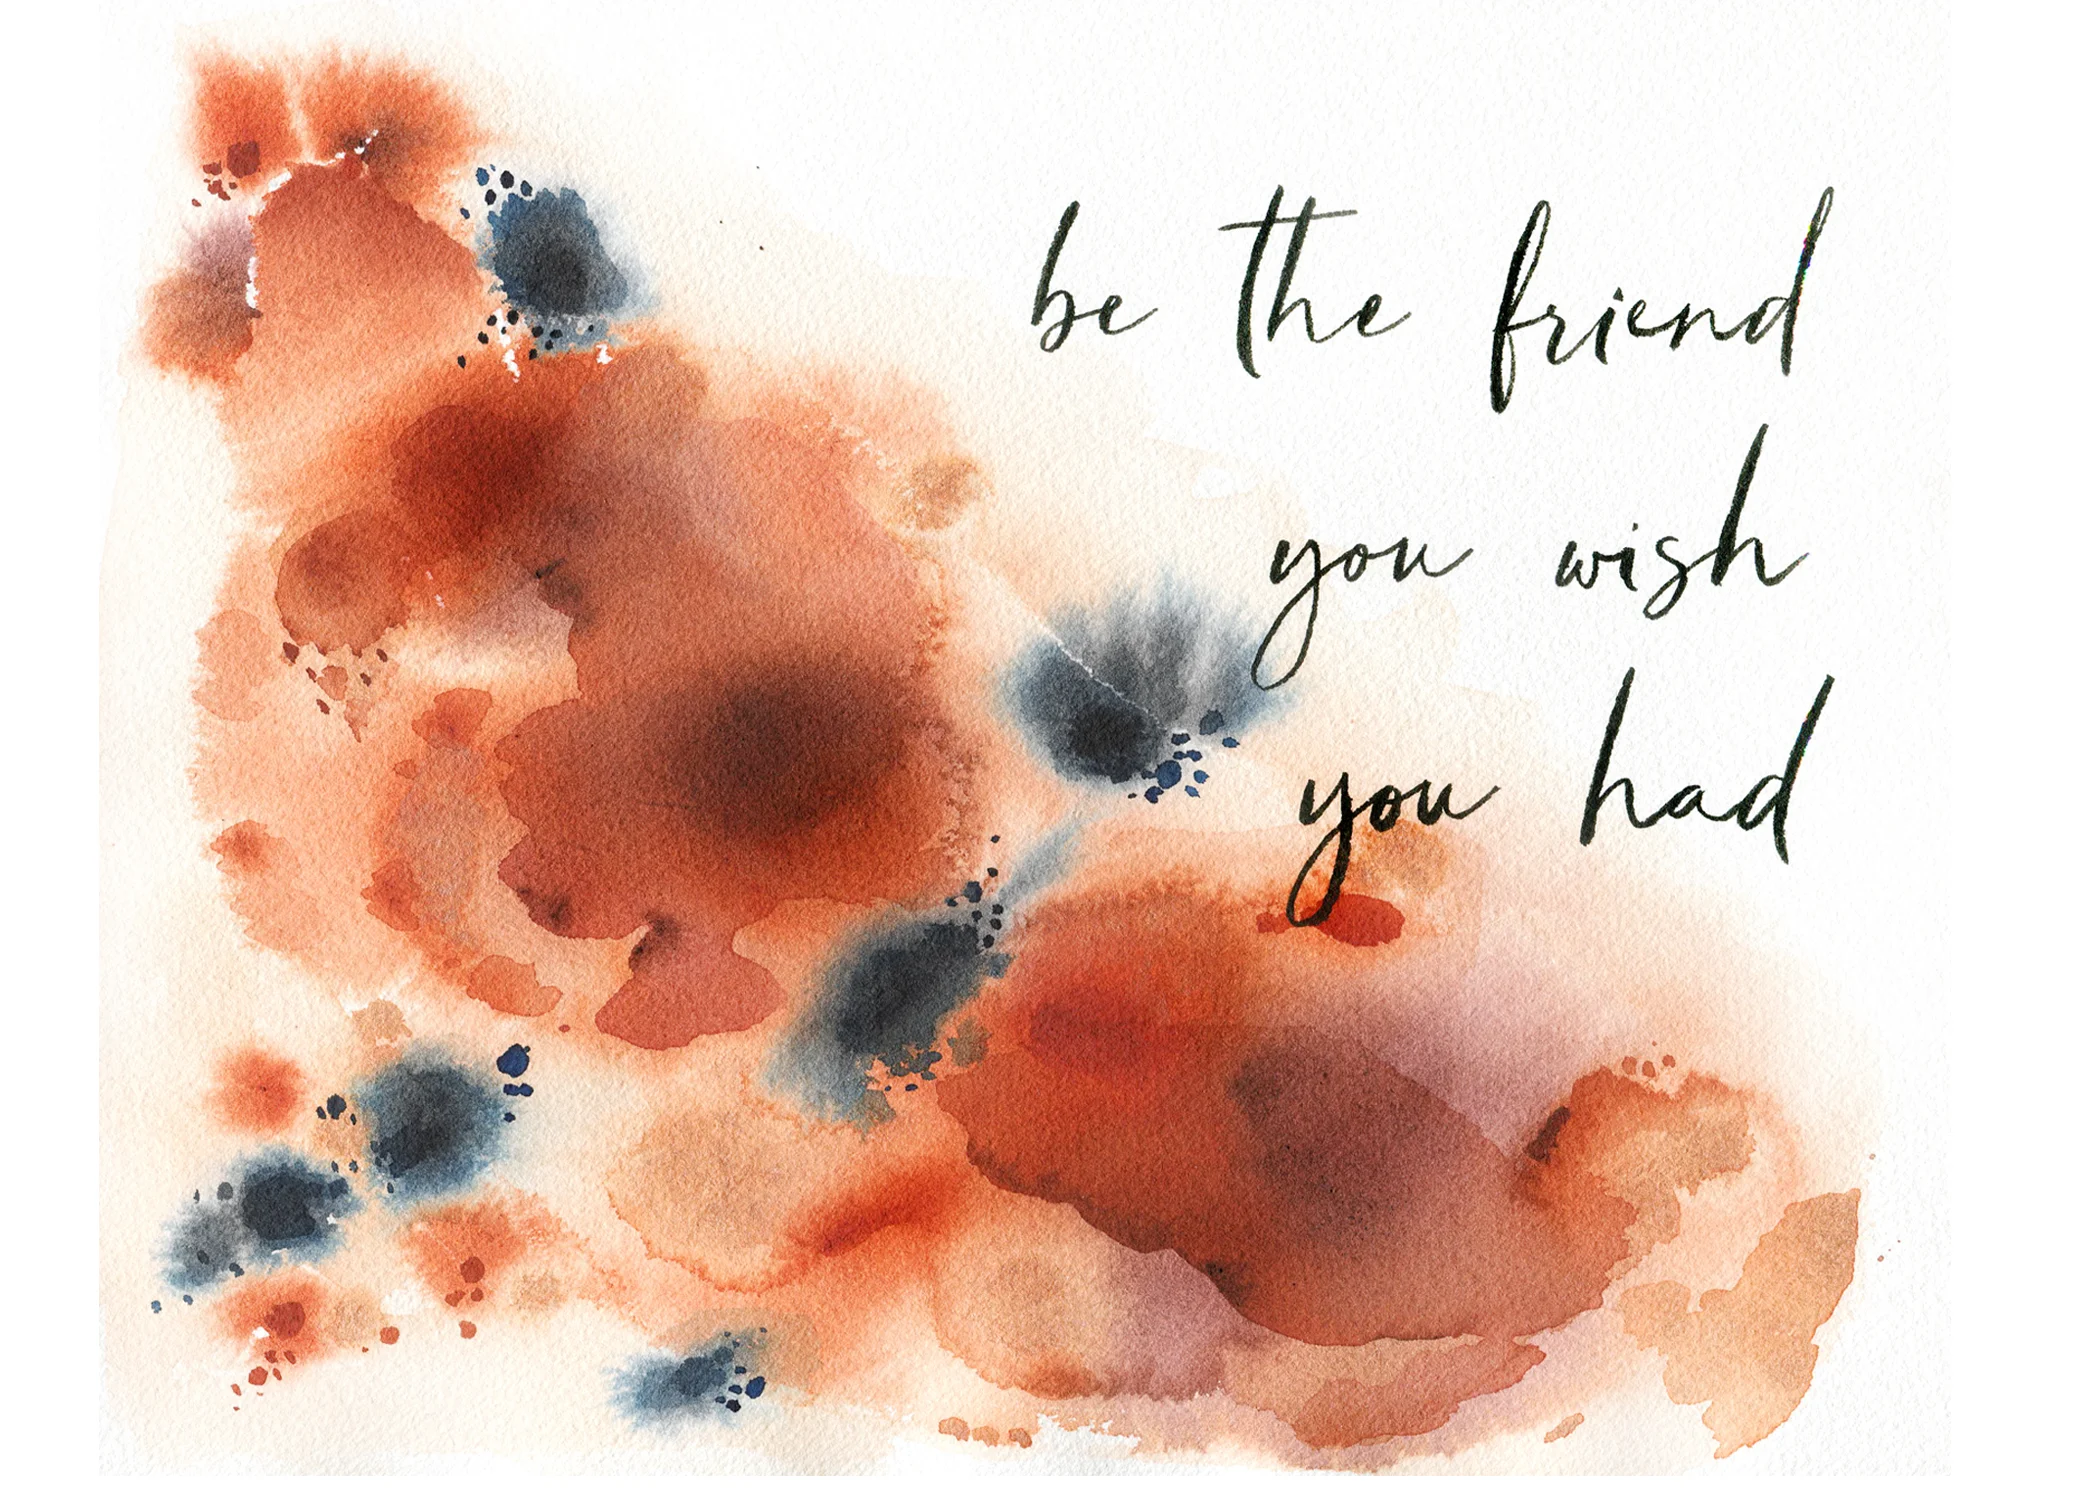 be the friend
you wish
you had